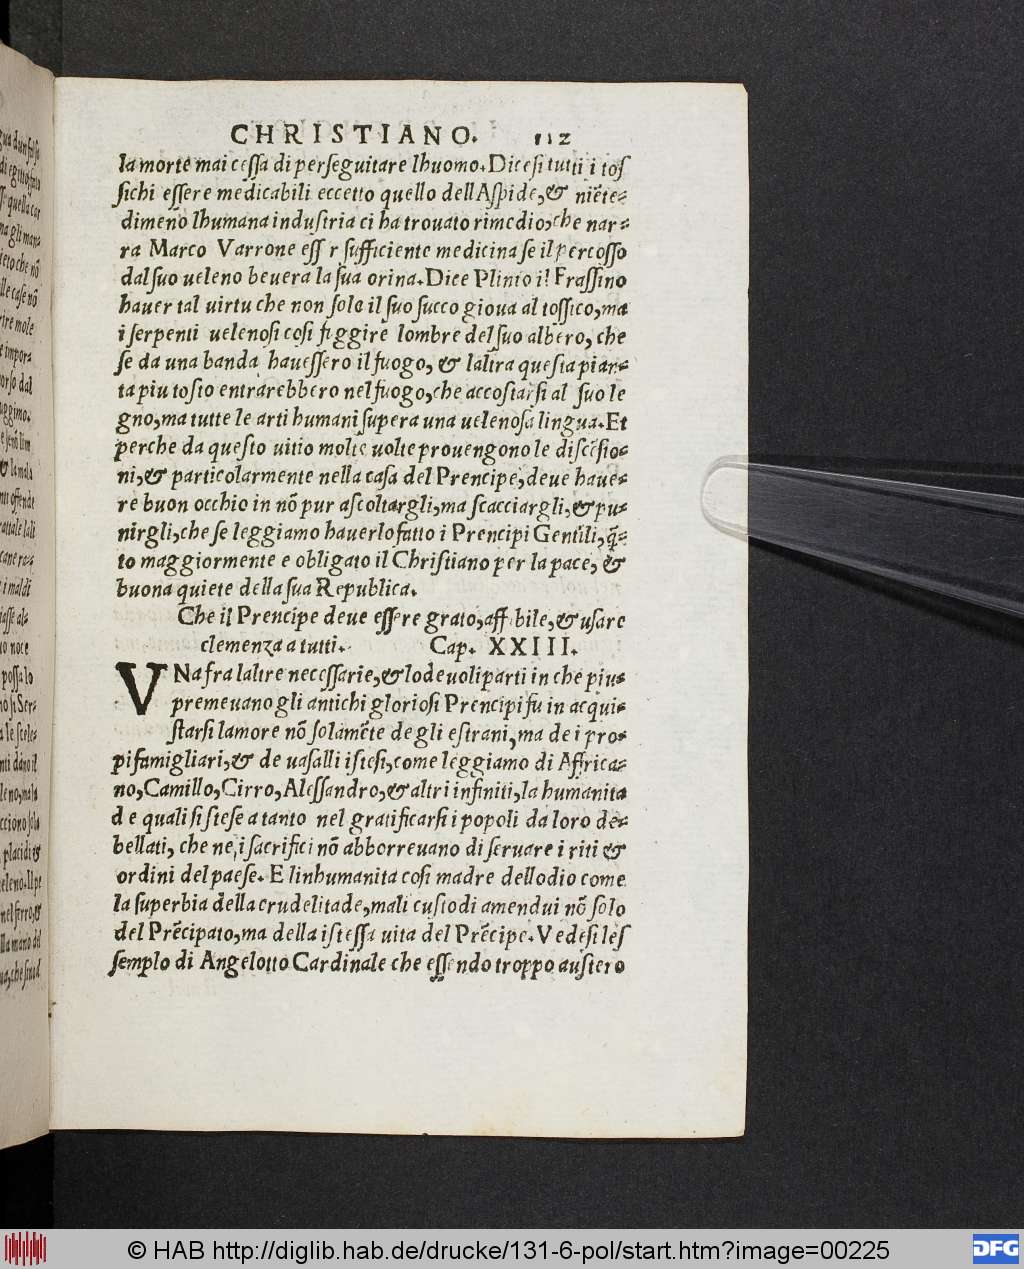 CHRISTIANO. 112
la morte mai cessa di perseguitare lhuomo. Dicesi tutti i tos
sichi essere medicabili eccetto quello dell Aspide, & niẽte-
dimeno lhumana industria ci ha trouato rimedio, che nar-
ra Marco Varrone ess r sufficiente medicina se il percosso
dal suo ueleno beuera la sua orina. Dice Plinio il Frassino
hauer tal uirtu che non solo il suo succo gioua al tossico, ma
i serpenti uelenosi cosi fuggire lombre del suo albero, che
se da una banda hauessero il fuogo, & laltra questa pian-
ta piu tosto entrarebbero nel fuogo, che accostarsi al suo le
gno, ma tutte le arti humani supera una uelenosa lingua. Et
perche da questo uitio molte uolte prouengono le discẽsio-
ni, & particolarmente nella casa del Prencipe, deue haue-
re buon occhio in nõ pur ascoltargli, ma scacciargli, & pu-
nirgli, che se leggiamo hauerlo fatto i Prencipi Gentili, q̃-
to maggiormente e obligato il Christiano per la pace, &
buona quiete della sua Republica.
Che il Prencipe deue essere grato, aff bile, & usare
clemenza a tutti. Cap. XXIII.
VNa fra laltre necessarie, & lodeuoli parti in che piu-
premeuano gli antichi gloriosi Prencipi fu in acqui-
starsi lamore nõ solamẽte de gli estrani, ma de i pro-
pi famigliari, & de uasalli istesi, come leggiamo di Affrica-
no, Camillo, Cirro, Alessandro, & altri infiniti, la humanita
de quali si stese a tanto nel gratificarsi i popoli da loro de-
bellati, che ne i sacrifici nõ abborreuano di seruare i riti &
ordini del paese. E linhumanita cosi madre dellodio come
la superbia della crudelitade, mali custodi amendui nõ solo
del Prẽcipato, ma della istessa uita del Prẽcipe. Vedesi les
semplo di Angelotto Cardinale che essendo troppo austero
© HAB http://diglib.hab.de/drucke/131-6-pol/start.htm?image=00225
DFG